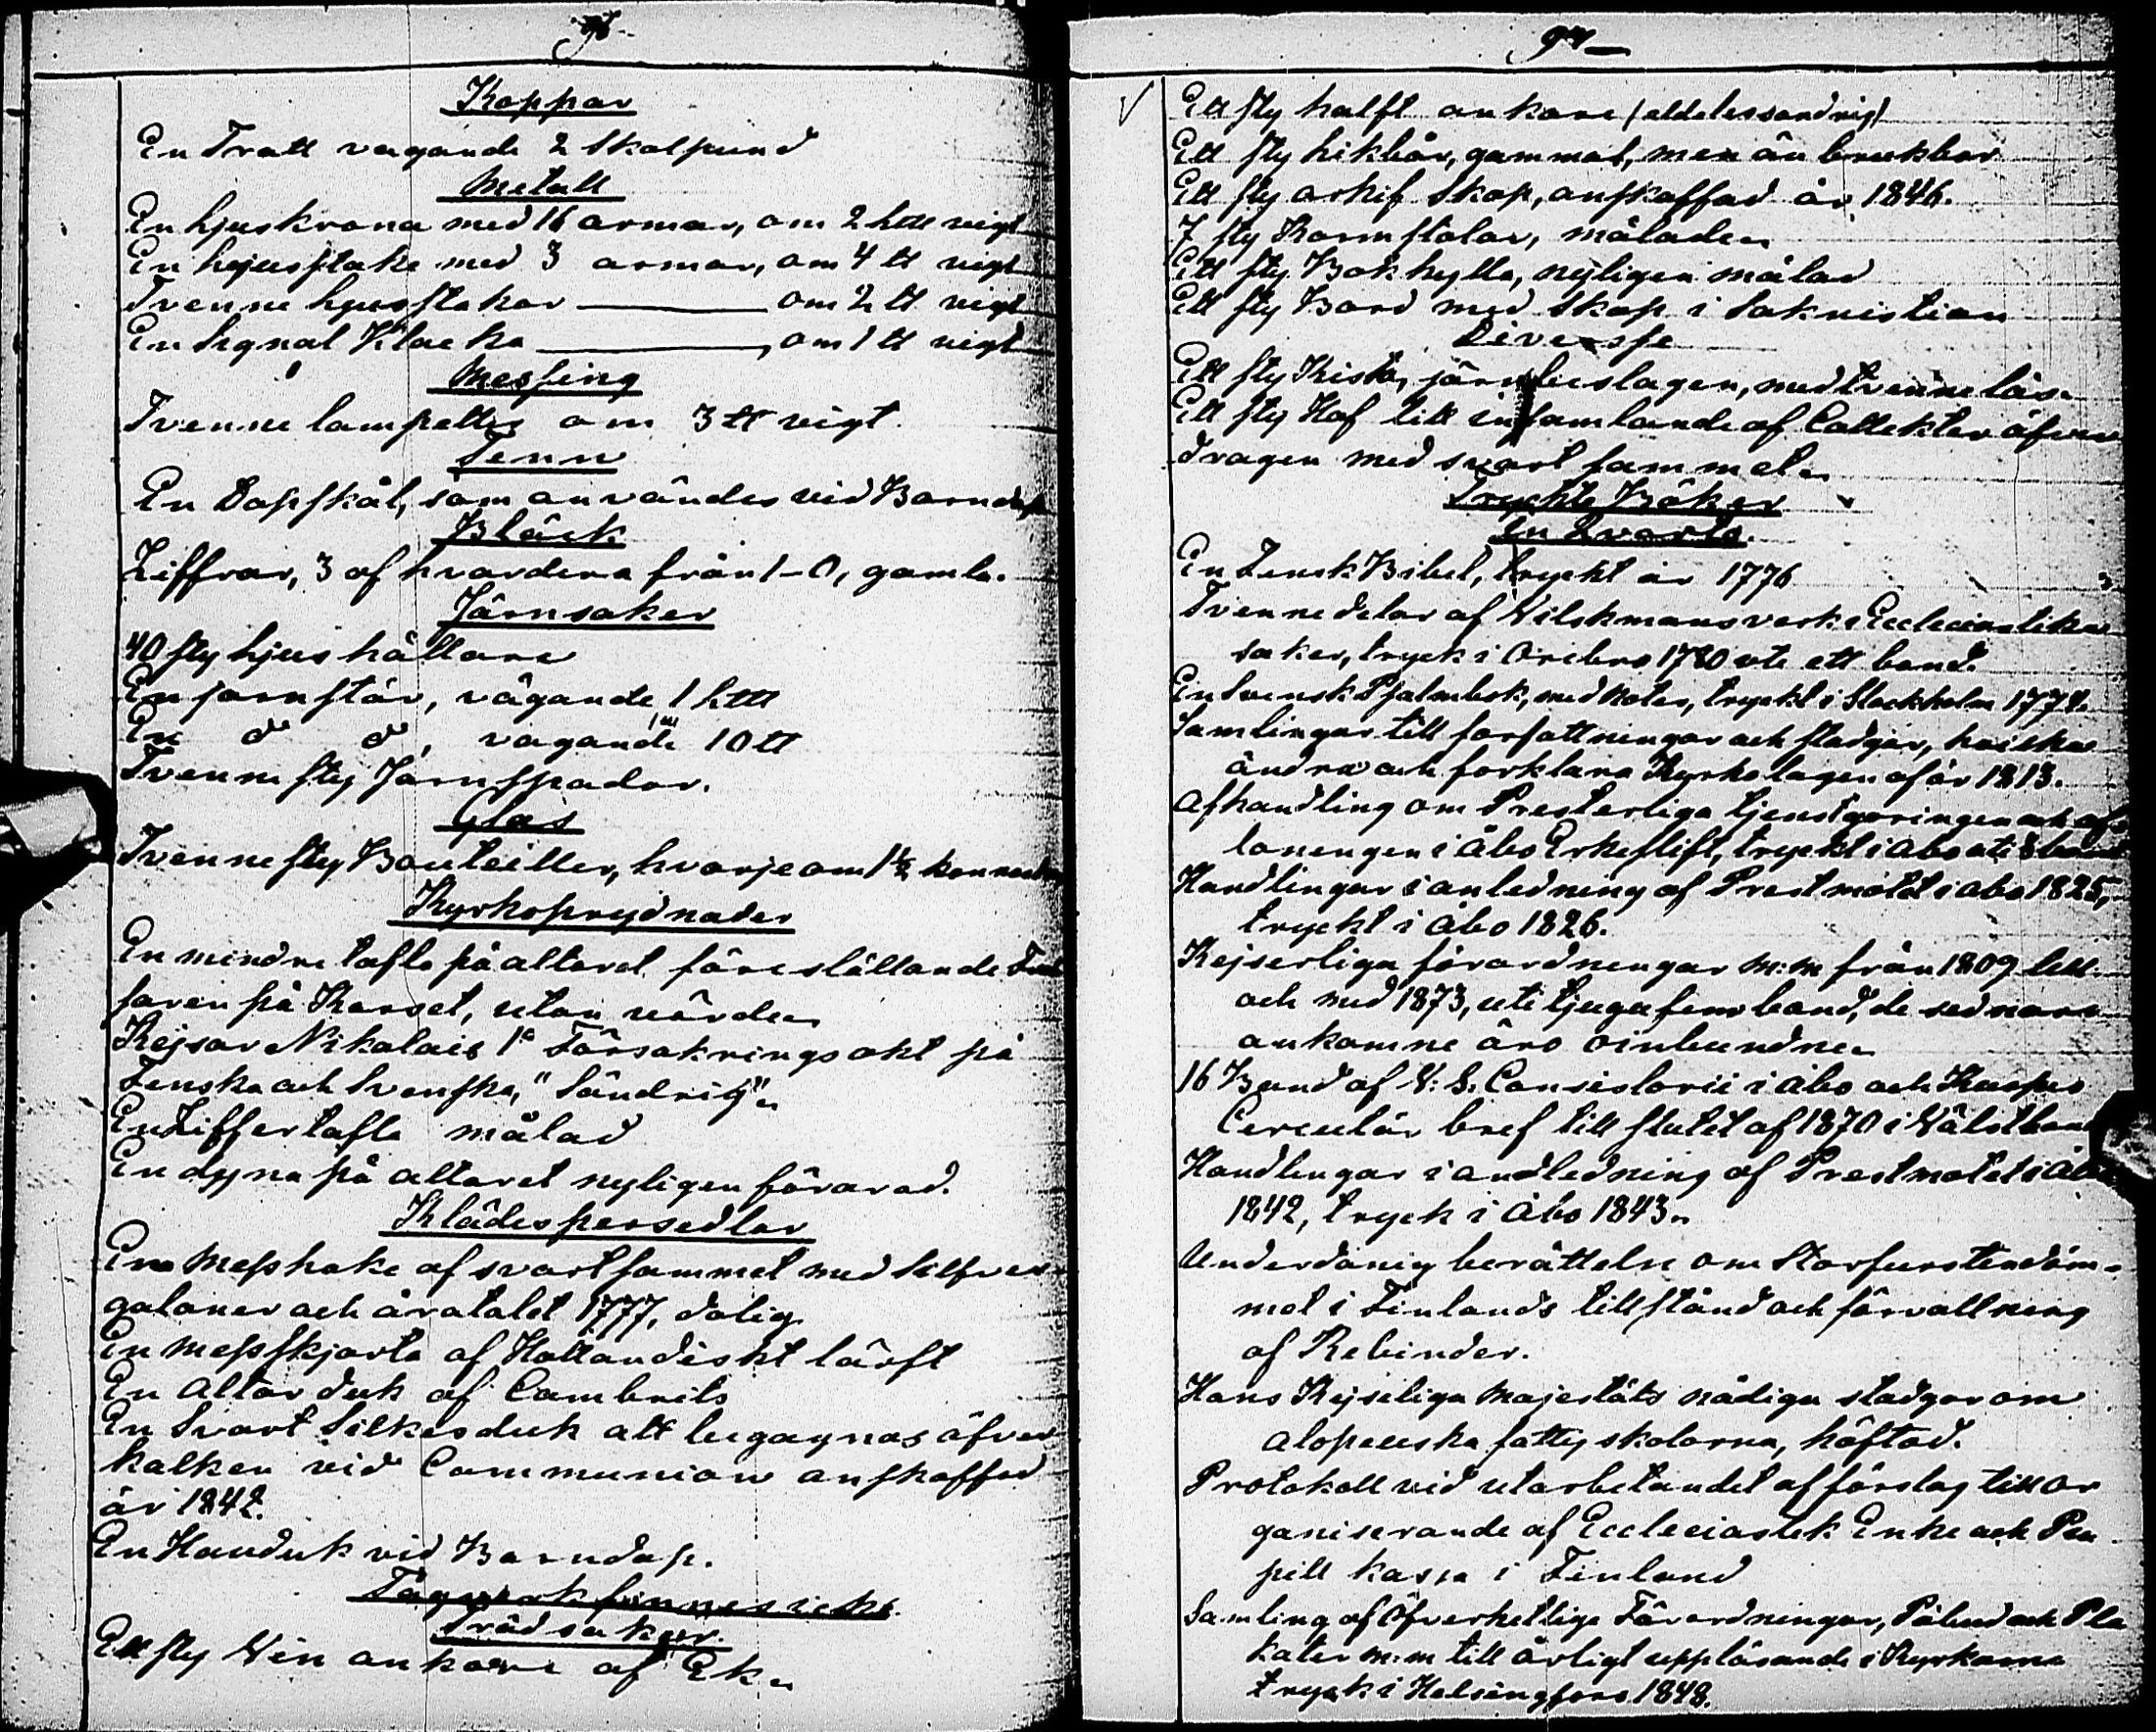 96.
Koppar
En Tratt vagande 2 Skolpund
Metall
En ljuskrona med 16 armar, om 2 L℔ vigt
En ljusstake med 3 armar, om 4 ℔ vigt
Tvenne ljusstakar om 2 ℔ vigt
En Signal Klocka om 1 ℔ vigt
Messing
Tvenne lampetter om 3 ℔ vigt.
Tenn
En Dopskål, som användes vid Barndop
Bläck
Ziffror, 3 af hvardera från 1-0, gamla.
Järnsaker
40 sty ljushållare
En jernstör, vägande 1 L℔
En do do, vagande 10 ℔
Tvenne sty Järnspador.
Glas
Tvenne sty Bouteiller, hvarje om 1½
Kyrkoprydnader
En mindre tafla på altaret föreställande
saren på Korset, utan värde
Kejsar Nikolais 1a Försäkringsakt på
Finska och Svenska, "Söndrig"
En Ziffertafla målad
En dyna på altaret nyligen förärad.
Klädespersedlar
En Messhake af svart sammet med Silfver
galoner och åratalet 1777, dålig
En messskjorta af Holländiskt lärft
En Altarduk af Cambrits
En Svart Silkesduk att begagnas öfver
kalken vid Communion anskaffad
år 1842.
En Handuk vid Barndop.
Tågverk finnes icke.
Trädsaker.
Ett sty Vin ankare af Ek
97
Ett sty halft ankare (aldeles sondrig)
Ett sty likbår, gammal, men än brukbar
Ett sty arkif Skåp, anskaffad år 1846.
7 sty Karmstolar, målade
Ett sty Bokhylla, nyligen målad
Ett sty Bord med Skåp i Sakristian
Diverse
Ett sty Kista, järnbeslagen, med tvenne lås.
Ett sty Håf till insamlande af Collekter öfver
dragen med svart sammet
Tryckte Böker
in Qvarto.
En Finsk Bibel, tryckt år 1776
Tvenne delar af Wilskmans verk i Eccleciastika
saker, tryck i Örebro 1780 ute ett band.
En Svensk Psalmbok, med Noter, tryckt i Stockholm 1774.
Samlingar till forfattningar och stadgar, hvilka
ändra och forklara Kyrkolagen af år 1813.
Afhandling om Presterliga tjenstgöringen och af
loningen i Åbo Erkestift, tryckt i Åbo uti 8 band
Handlingar i anledning af Prestmötet i Åbo 1825,
tryckt i Åbo 1826.
Kejserliga förordningar m:m från 1809 till
och med 1873, uti tjugufem band, de sednare
ankomne äro oinbundne
16 Band af V. S. Consistorii i Åbo och Kuopio
Circulär bref till slutet af 1870 i Wälstband
Handlingar i andledning af Prestmötet i Åbo
1842, tryck i Åbo 1843.
Underdånig berättelse om Storfurstendöm-
met i Finlands tillstånd och förvaltning
af Rebinder.
Hans Kejseliga Majestäts nådiga stadgar om
alopeuska fattig skolorna, häftad.
Protokoll vid utarbetandet af förslag till or
ganiserande af Eccleciastik Enke och Pu
pill kassa i Finland
Samling af Öfverhetlige Förordningar, Påbud och Pla
kater m:m till årligt uppläsande i Kyrkorna
tryck i Helsingfors 1848.